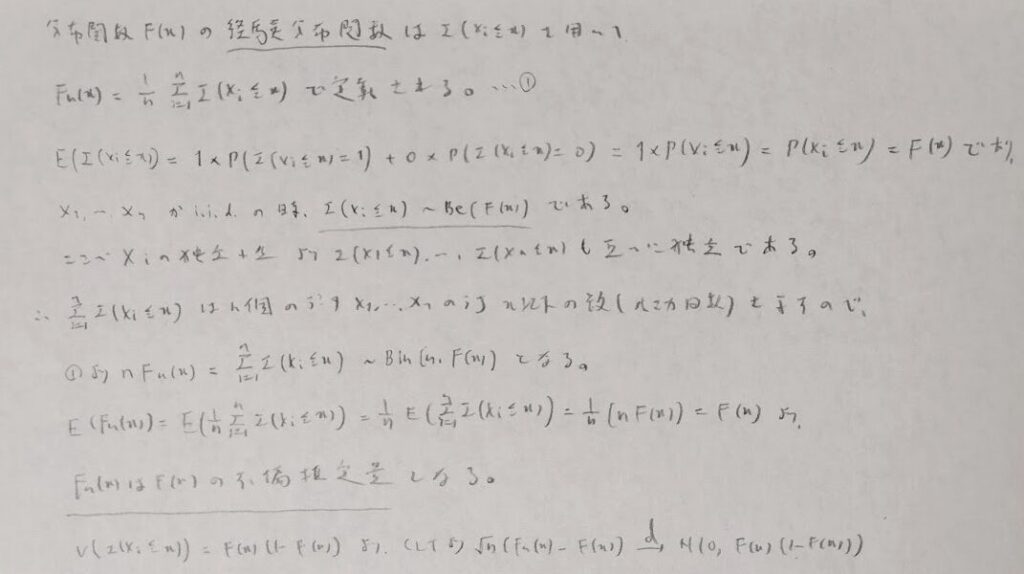 分布関数 F(x) の 経験分布関数 は I(Xi≦x) を用いて
Fn(x) = 1/n Σ_{i=1}^{n} I(Xi≦x) で定義される。…①
E(I(Xi≦x)) = 1×P(I(Xi≦x)=1) + 0×P(I(Xi≦x)=0) = 1×P(Xi≦x) = P(Xi≦x) = F(x) であり、
X1, …, Xn が i.i.d. の時、I(Xi≦x) ~ Be(F(x)) である。
ここで Xi の独立性 より I(X1≦x), …, I(Xn≦x) も互いに独立である。
∴ Σ_{i=1}^{n} I(Xi≦x) は n個のデータ X1, …, Xn のうち x以下の数(成功回数)を表すので、
①より nFn(x) = Σ_{i=1}^{n} I(Xi≦x) ~ Bin(n, F(x)) となる。
E(Fn(x)) = E(1/n Σ_{i=1}^{n} I(Xi≦x)) = 1/n E(Σ_{i=1}^{n} I(Xi≦x)) = 1/n (nF(x)) = F(x) より、
Fn(x) は F(x) の不偏推定量となる。
V(I(Xi≦x)) = F(x)(1-F(x)) より、CLTより √n(Fn(x) - F(x)) →d N(0, F(x)(1-F(x)))